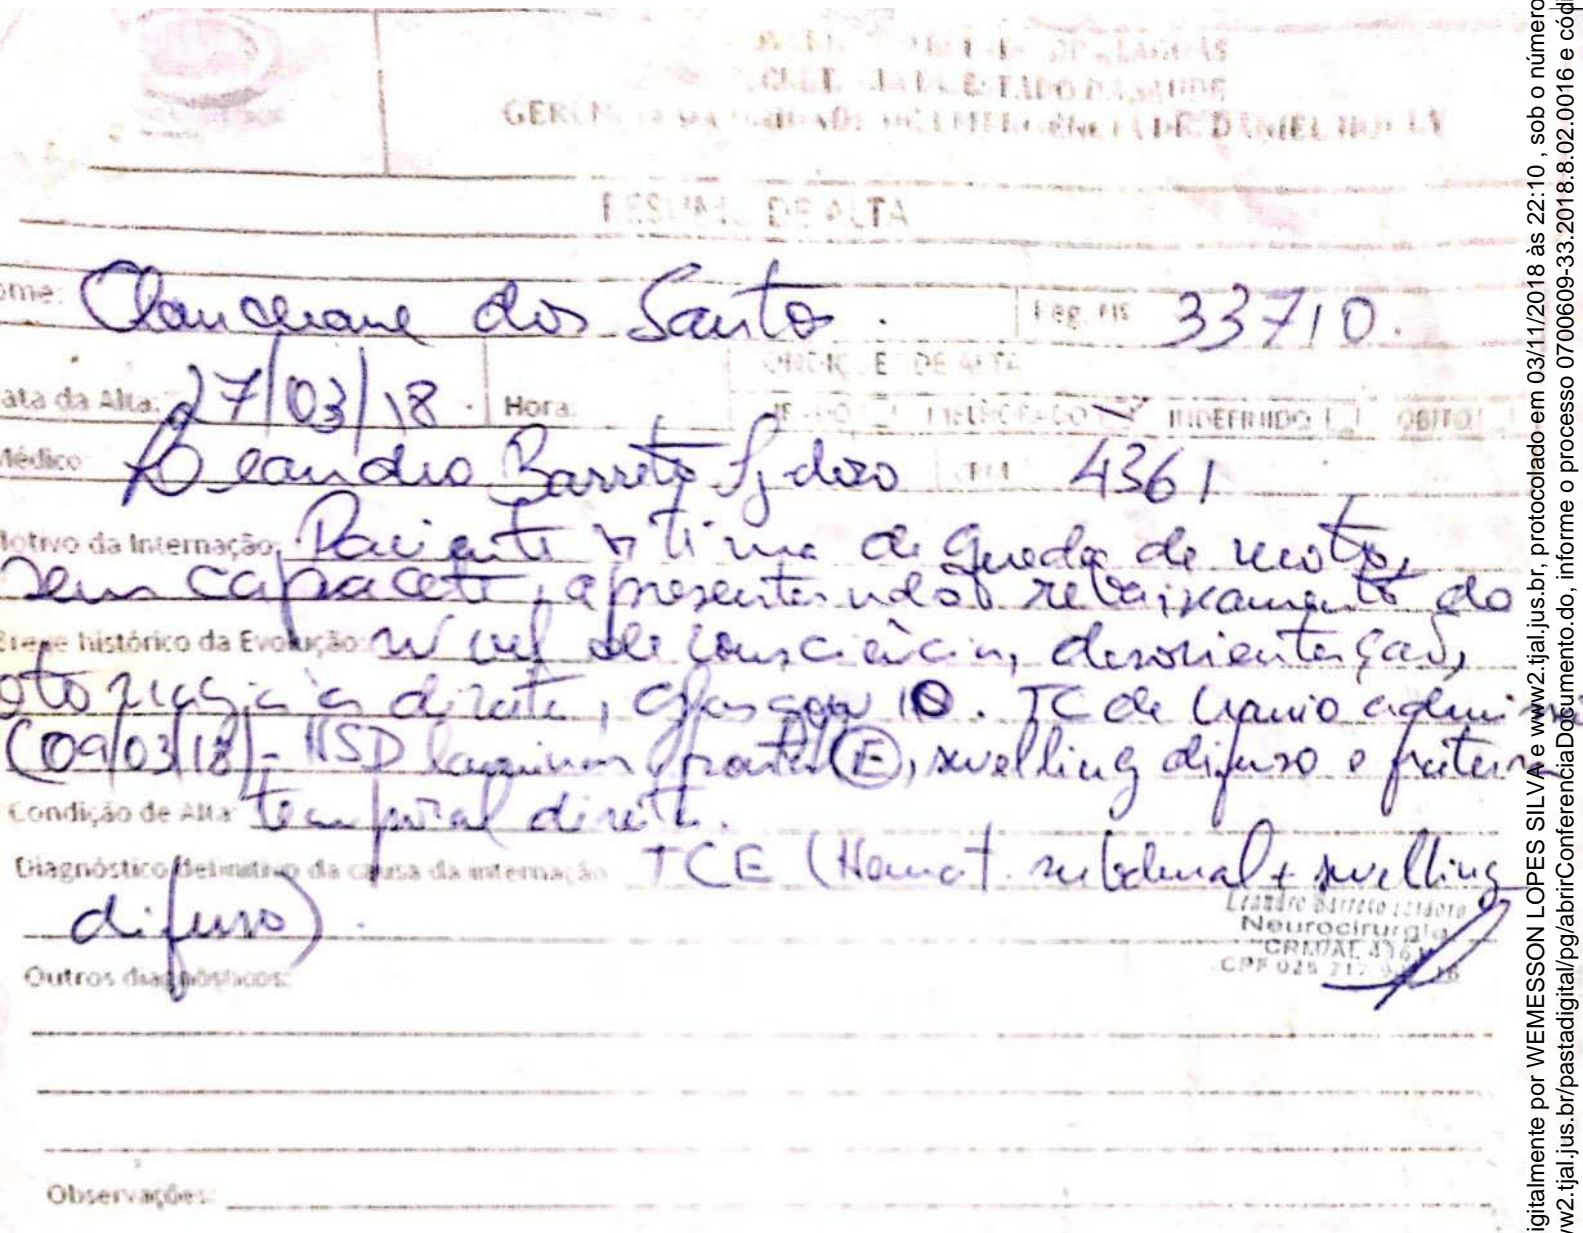 DE ALAGOAS
ESTADO DA SAÚDE
GERÊNCIA DA UNIDADE DE EMERGÊNCIA DR. DANIEL
RESUMO DE ALTA
ome: dos Santos. Reg. 33710.
DE ALTA
ata da Alta: 27/03/18. Hora: MELHORADO INDEFINIDO ÓBITO
Médico Leandro Barreto 4361
Motivo da Internação: Paciente vítima de queda de moto,
sem capacete, apresentando rebaixamento do
Breve histórico da Evolução: nível de consciência, desorientação,
otorragia a direita, Glasgow 10. TC de cranio
(09/03/18)- HSD laminar frontal (E), swelling difuso e
Condição de Alta: temporal direita.
Diagnóstico definitivo da causa da internação TCE (Hemat. subdural + swelling
difuso).
Leandro Barreto
Neurocirurgia
CRM/AL 4361
CPF 025 717
Outros diagnósticos:
Observações:
igitalmente por WEMESSON LOPES SILVA e www2.tjal.jus.br, protocolado em 03/11/2018 às 22:10 , sob o número
ww2.tjal.jus.br/pastadigital/pg/abrirConferenciaDocumento.do, informe o processo 0700609-33.2018.8.02.0016 e códi